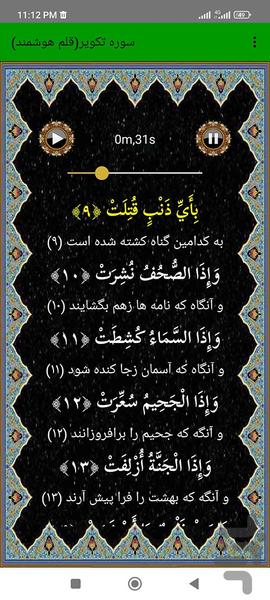 11:12 PM
4G
49
سوره تکویر(قلم هوشمند)
0m,31s
بِأَيِّ ذَنْبٍ قُتِلَتْ ﴿۹﴾
به کدامین گناه کشته شده است (۹)
وَإِذَا الصُّحُفُ نُشِرَتْ ﴿۱۰﴾
و آنگاه که نامه ها زهم بگشایند (۱۰)
وَإِذَا السَّمَاءُ كُشِطَتْ ﴿۱۱﴾
و آنگاه که آسمان زجا کنده شود (۱۱)
وَإِذَا الْجَحِيمُ سُعِّرَتْ ﴿۱۲﴾
و آنگه که جحیم را برافروزانند (۱۲)
وَإِذَا الْجَنَّةُ أُزْلِفَتْ ﴿۱۳﴾
و آنگه که بهشت را فرا پیش آرند (۱۳)